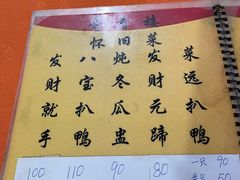 楼
怀旧菜
发财就手
八宝扒鸭
炖冬瓜盅
发财元蹄
菜远扒鸭
100
110
90
180
一只 90
50